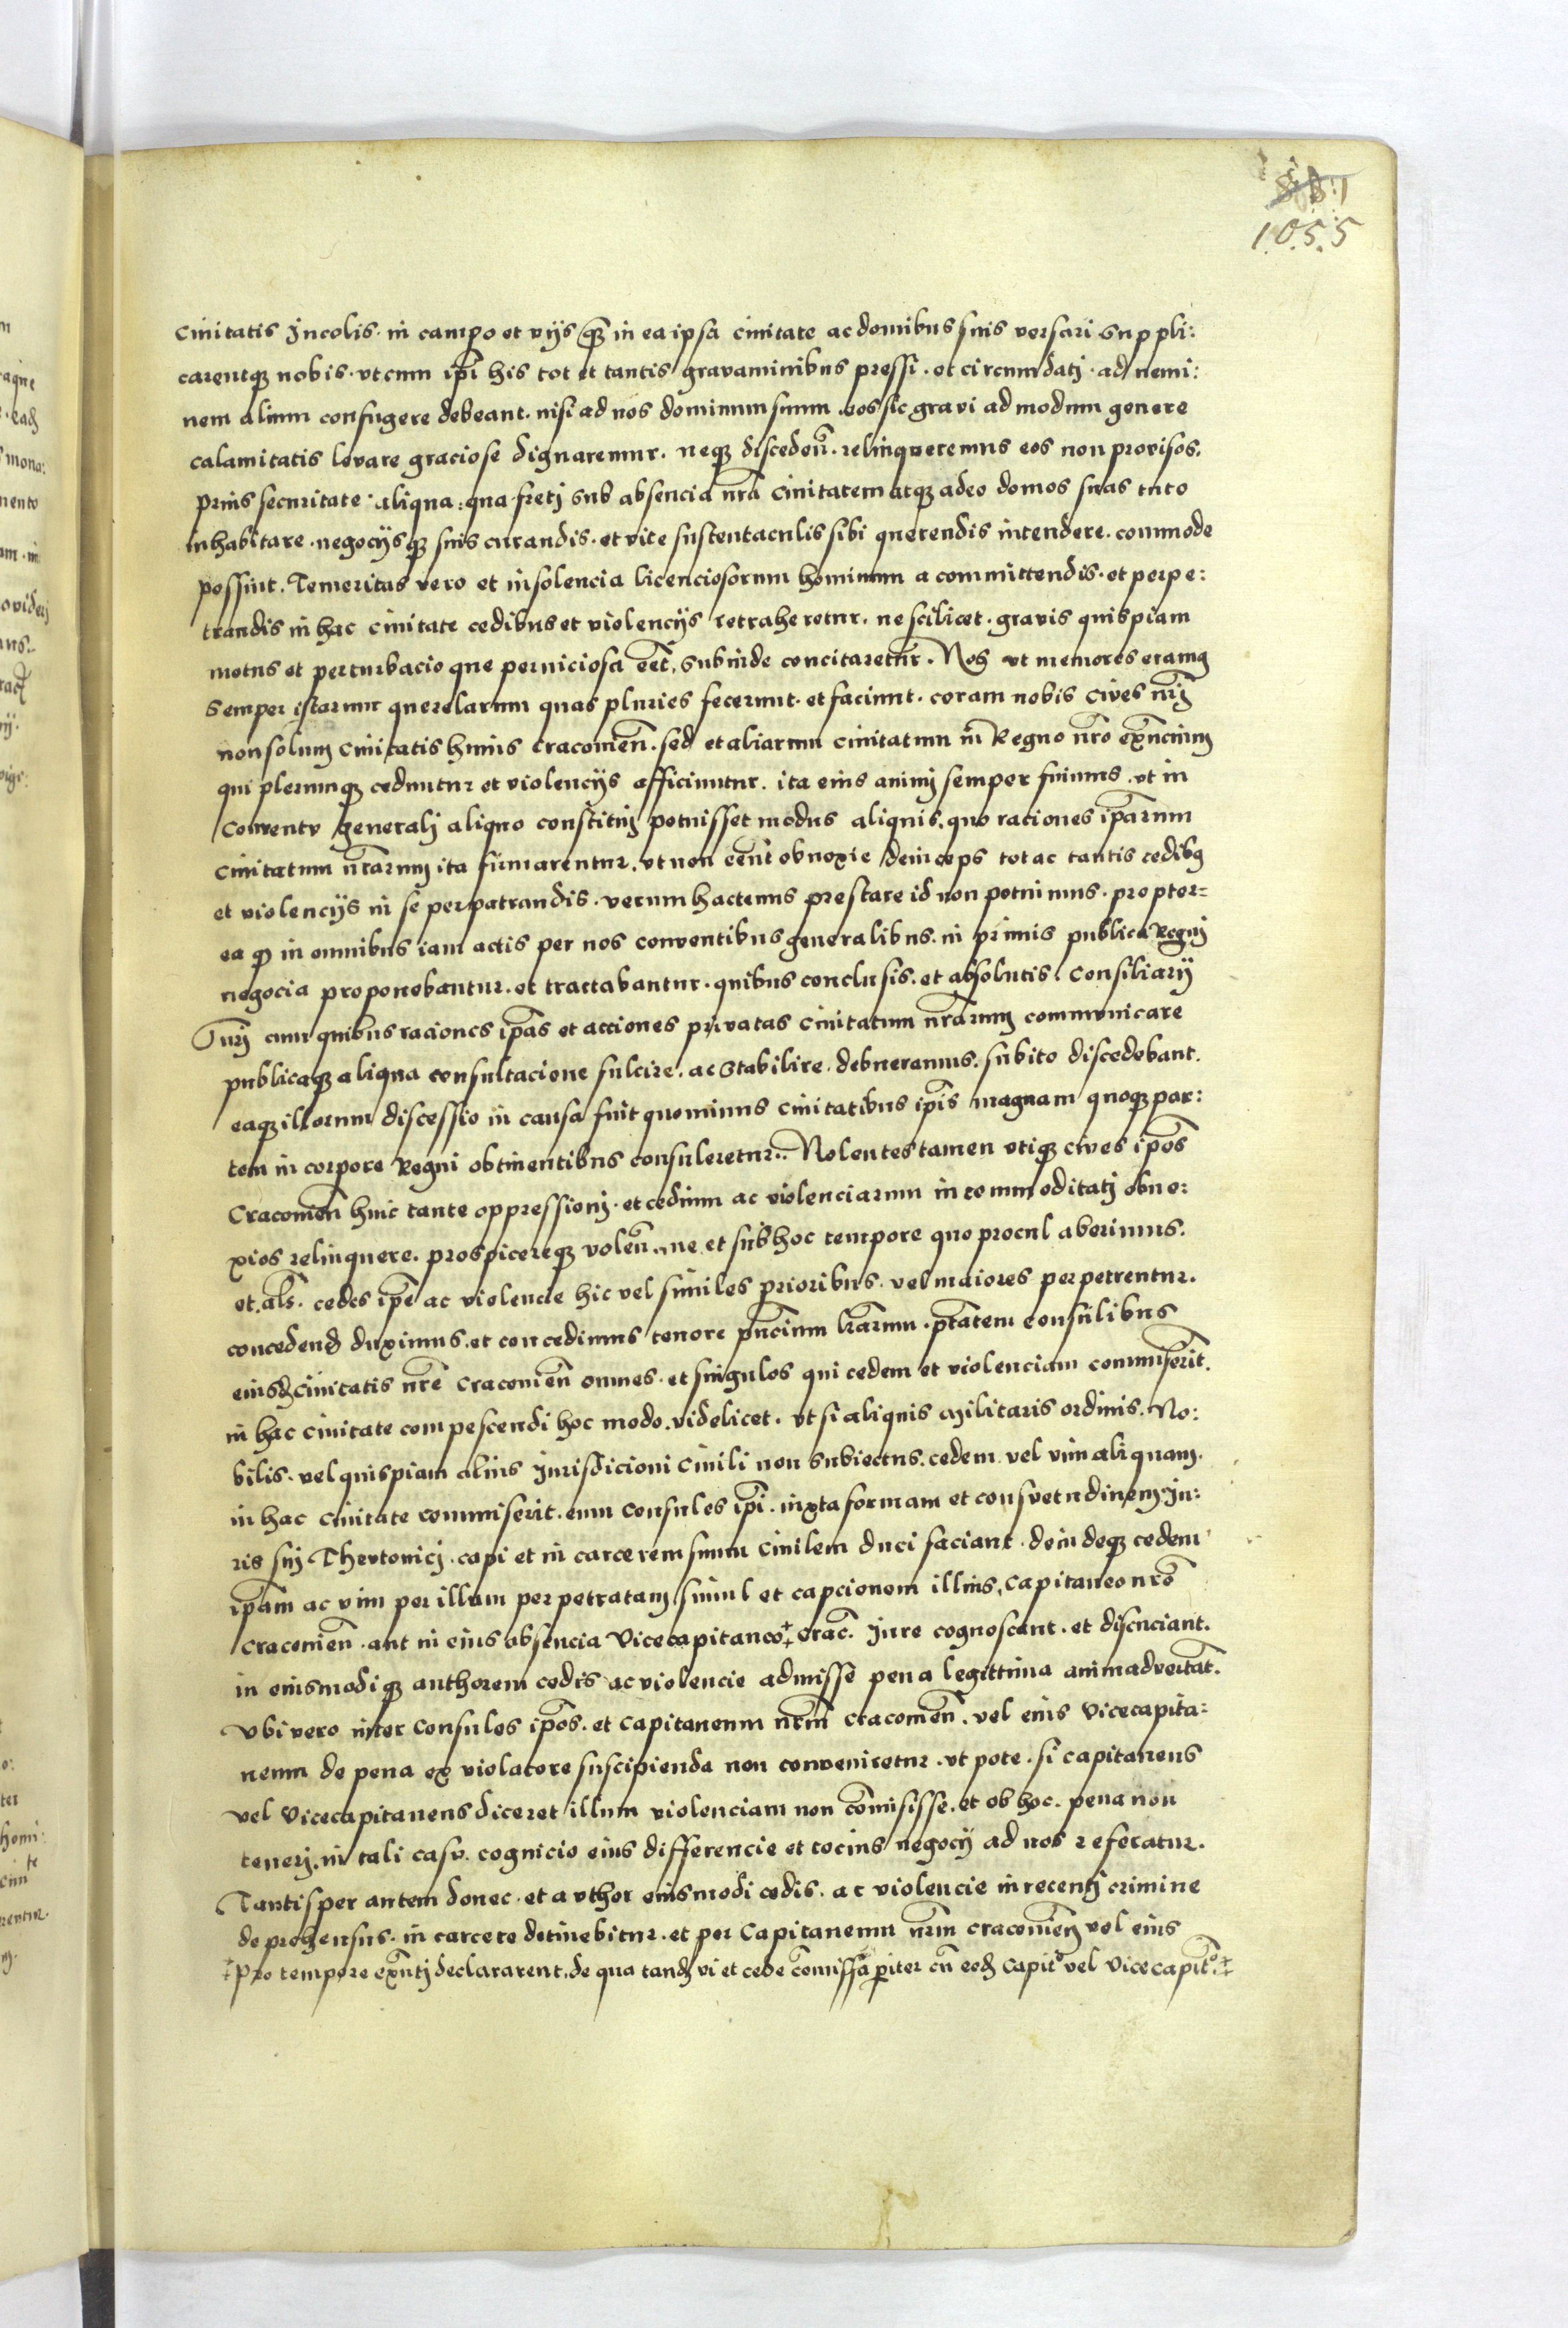 1055
ciuitatis Incolis. in campo et vijs q̃ȝ in ea ipsa ciuitate ac domibus suis versari suppli:
carentqȝ nobis. vt cum ip̃i his tot et tantis gravaminibus pressi. et circumdatj. ad nemi:
nem alium confugere debeant. nisi ad nos dominum suum. eos sic gravi admodum genere
calamitatis levare graciose dignaremur. neqȝ discedeñ. relinqueremus eos non provisos.
prius securitate aliqua: qua fretj sub absencia nr̃a ciuitatem atqȝ adeo domos suas tuto
inhabitare. negocijsqȝ suis curandis. et vite sustentaculis sibi querendis intendere. commode
possint. Temeritas vero et insolencia licenciosorum hominum a committendis. et perpe:
trandis in hac ciuitate cedibus et violencijs retraheretur. ne scilicet. gravis quispiam
motus et perturbacio que perniciosa eẽt, subinde concitaretur. Nos vt memores eramꝰ
semper istarum querelarum quas pluries fecerunt. et faciunt. coram nobis cives nr̃j
non solum ciuitatis huius cracouieñ. sed et aliarum ciuitatum in Regno nr̃o exñcium
qui plerumqȝ ceduntur et violencijs afficiuntur. ita eius animj semper fuimus. vt in
Conventu generalj aliquo constituj potuisset modus aliquis. quo raciones ip̃arum
ciuitatum nr̃arum ita firmarentur. vt non eẽnt obnoxie deinceps tot ac tantis cedibꝰ
et violencijs in se perpatrandis. verum hactenus prestare id non potuimus. propter=
ea qȝ in omnibus iam actis per nos conventibus generalibus. in primis publica Regnj
negocia proponebantur. et tractabantur. quibus conclusis. et absolutis. Consiliarij
nr̃j cum quibus raciones ip̃as et acciones privatas ciuitatum nr̃arum communicare
publicaqȝ aliqua consultacione fulcire. ac stabilire. debueramus. subito discedebant.
eaqȝ illorum discessio in causa fuit quominus ciuitatibus ip̃is magnam quoqȝ par:
tem in corpore Regni obtinentibus consuleretur. Nolentes tamen vtiqȝ cives ip̃os
Cracouieñ huic tante oppressionj. et cedium ac violenciarum incommoditatj obno:
xios relinquere. prospicereqȝ voleñ. ne et sub hoc tempore quo procul aberimus.
et als̃. cedes ip̃e ac violencie hic vel similes prioribus. vel maiores perpetrentur.
concedendȝ duximus. et concedimus tenore pñcium lr̃arum. ptãtem consulibus
eiusdȝ ciuitatis nr̃e cracouieñ omnes. et singulos qui cedem et violenciam commiserĩt.
in hac ciuitate compescendi hoc modo. videlicet. vt si aliquis militaris ordinis. No:
bilis. vel quispiam alius Jurisdicioni Ciuili non subiectus. cedem vel vim aliquam.
in hac ciuitate commiserit. eum consules ip̃i. iuxta formam et consvetudinem Ju:
ris suj Thevtonicj. capi et in carcerem suum ciuilem duci faciant. deindeqȝ cedem
ip̃am ac vim per illum perpetratam simul et capcionem illius, capitaneo nr̃o
Cracouieñ. aut in eius absencia Vicecapitaneo ‡ crac̃. Jure cognoscant. et discuciant.
in eiusmodiqȝ authorem cedis ac violencie admisse pena legittima animadvertãt.
Vbi vero inter consules ip̃os. et capitaneum nr̃m cracouieñ. vel eius Vicecapita:
neum de pena ex violatore suscipienda non conveniretur. vt pote. si capitaneus
vel Vicecapitaneus diceret illum violenciam non cõmisisse. et ob hoc. pena non
tenerj. in tali casu. cognicio eius differencie et tocius negocij ad nos referatur.
Tantisper autem donec. et avthor eiusmodi cedis. ac violencie in recentj crimine
deprehensus. in carcere detinebitur. et per Capitaneum nr̃m cracouieñ vel eius
‡ pro tempore exñtj declararent. de qua tandȝ vi et cede cõmissa p̱iter cũ eodȝ capitº vel Vicecapitº. ‡